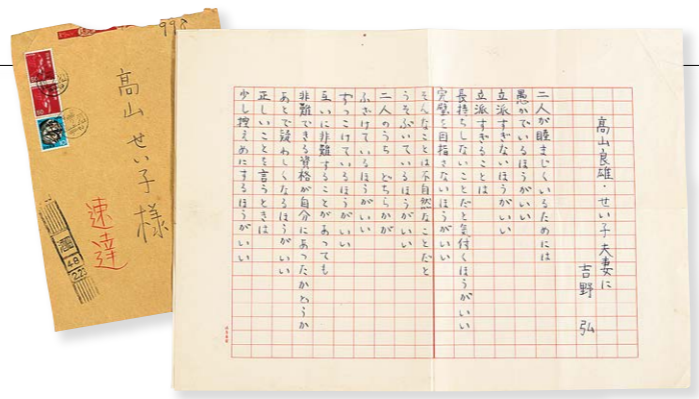 998
高山せい子様
速達
高山良雄・せい子 夫妻に
吉野 弘
二人が睦まじくいるためには
愚かでいるほうがいい
立派すぎないほうがいい
立派すぎることは
長持ちしないことだと気付くほうがいい
完璧を目指さないほうがいい
そんなことは不自然なことだと
うそぶいているほうがいい
二人のうち どちらかが
ふざけているほうがいい
ずっこけているほうがいい
互いに非難することがあっても
非難できる資格が自分にあったかどうか
あとで疑わしくなるほうがいい
正しいことを言うときは
少し控えめにするほうがいい